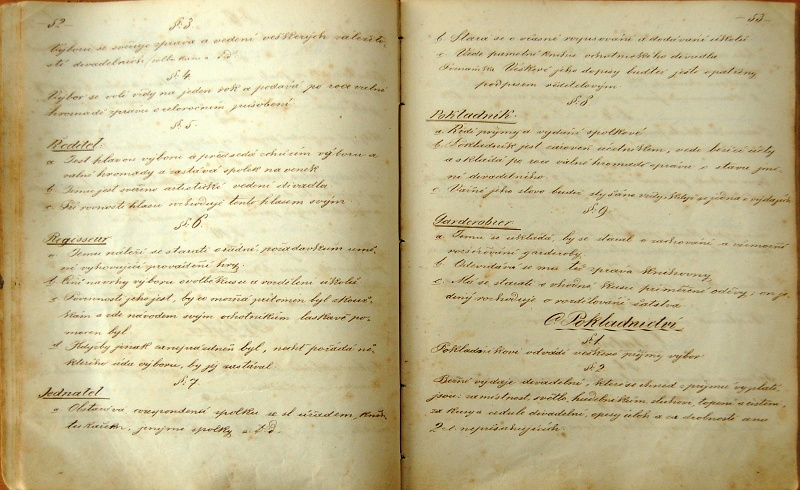 52
§. 3
Výboru se svěřuje správa a vedení veškerých záležito-
stí divadelních,
§. 4
Výbor se volí vždy na jeden rok a podává po roce valné
hromadě zprávu o celoročním působení
§. 5
Ředitel:
a Jest hlavou výboru a předsedá schůzím výboru a
valné hromady a zastává spolek na venek
b Jemu jest svěřeno artistické vedení divadla
c Při rovnosti hlasů rozhoduje tento hlasem svým.
§. 6
Regisseur
a. Jemu náleží se starati o řádné, požadavkům umě-
ní vyhovující provádění hry.
b. Činí návrhy výboru o volbě kusu a rozdělení úkolů
c Povinností jeho jest, by co možná přítomen byl zkouš-
kám a zde návodem svým ochotníkům laskavě po-
mocen byl
d Kdyby jinak zaneprázdněn byl, nechť požádá ně-
kterého úda výboru, by jej zastával
§. 7
Jednatel
a Obstarává correspondenci spolku se sl. úřadem, knih-
tiskařem, jinými spolky a t. d.
53
b. Stará se o včasné rozpisování a dodávání úkolů
c. Vede pamětní knihu ochotnického divadla
Poznámka Veškeré jeho dopisy buďtež ještě opatřeny
podpisem ředitelovým
§. 8
Pokladník:
a Řídí příjmy a vydání spolkové
b. Pokladník jest zároveň účetníkem, vede běžné účty
a skládá po roce valné hromadě zprávu o stavu jmě-
ní divadelního
c Vážné jeho slovo budiž slyšáno vždy, když se jedná o výdajích
§. 9
Garderobier
a. Jemu se ukládá, by se staral o zachování a všemožné
rozšiřování garderoby.
b. Odevzdává se mu též správa knihovny,
c Má se starati o přiměřené oděvy; on je-
diný rozhoduje o rozdělování šatstva
C. Pokladnictví
§. 1
Pokladníkovi odvádí veškeré příjmy výbor
§. 2
Běžné výdaje divadelní, které se ihned z příjmu vyplatí
jsou: za místnost, světlo, hudebníkům, sluhovi, topení a čistění,
za kusy a cedule divadelní, opisy úloh a za drobnosti ano
2 zl. nepřesahujících